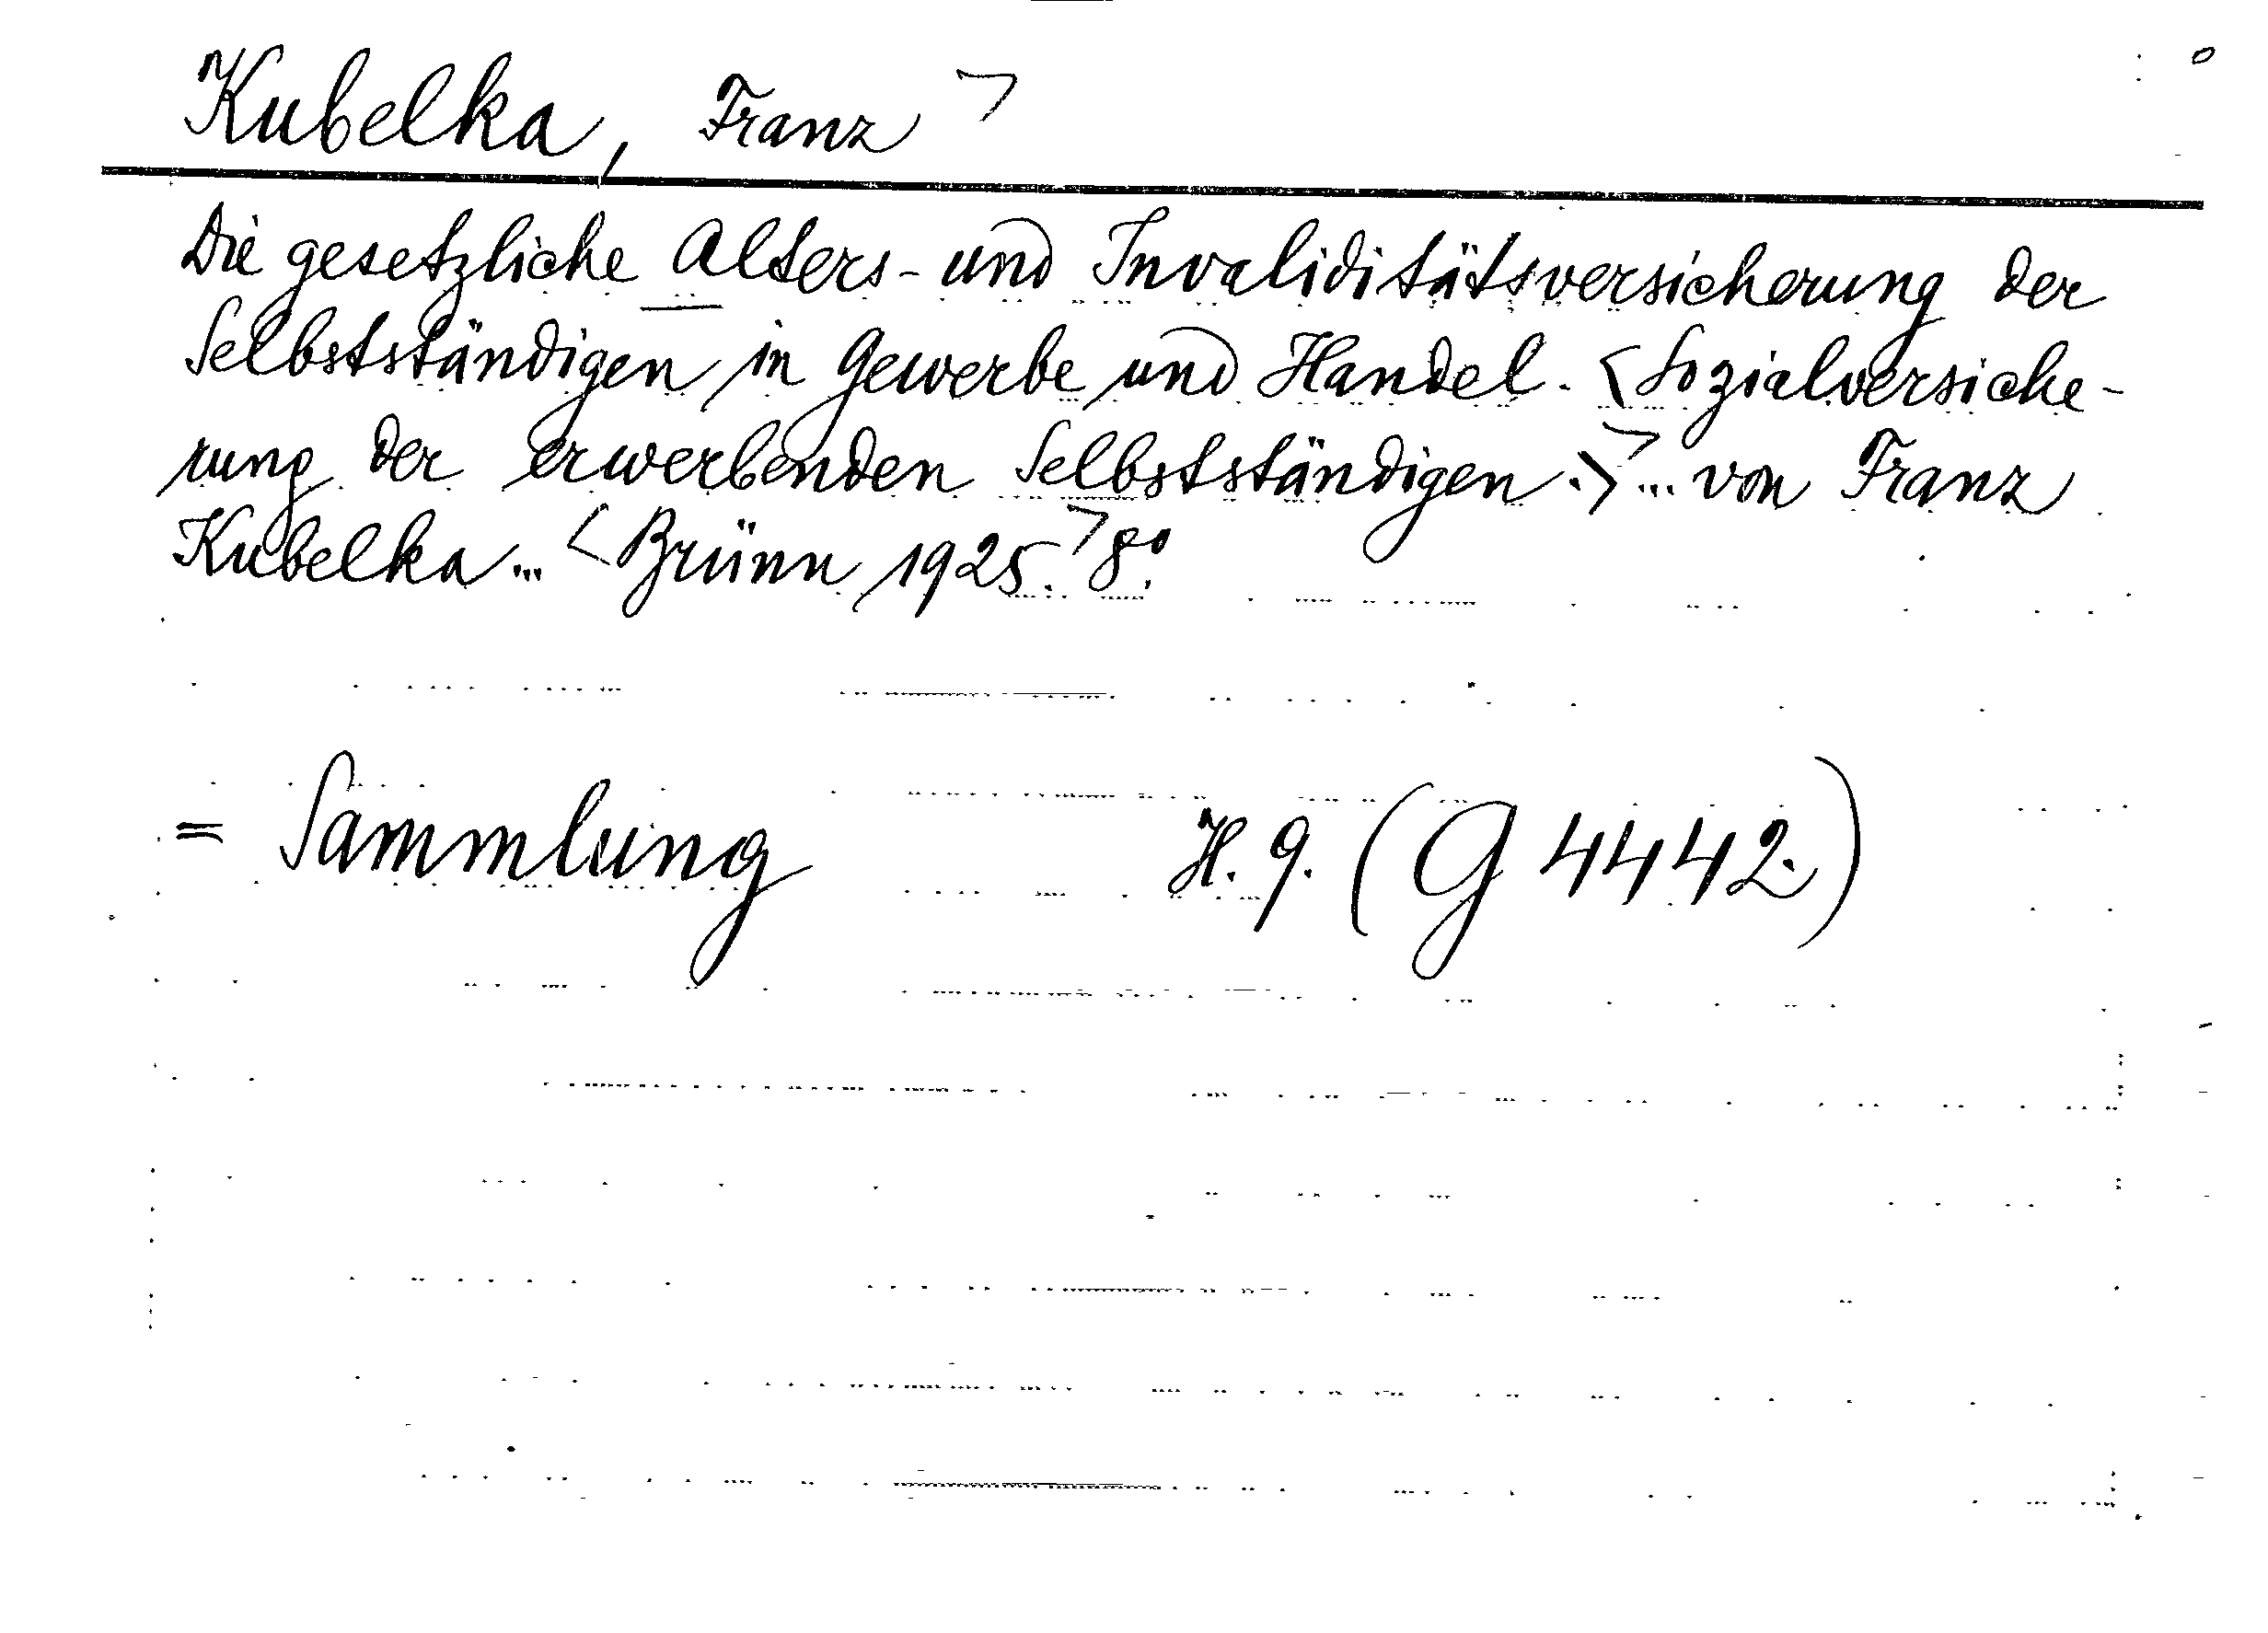 Kubelka, Franz >
Die gesetzliche Alters- und Invaliditätsversicherung der
Selbstständigen in Gewerbe und Handel. <Sozialversiche-
rung der erwerbenden Selbstständigen.> > ... von Franz
Kubelka ... <Brünn 1925.> 8°.
= Sammlung H. 9. (G 4442.)